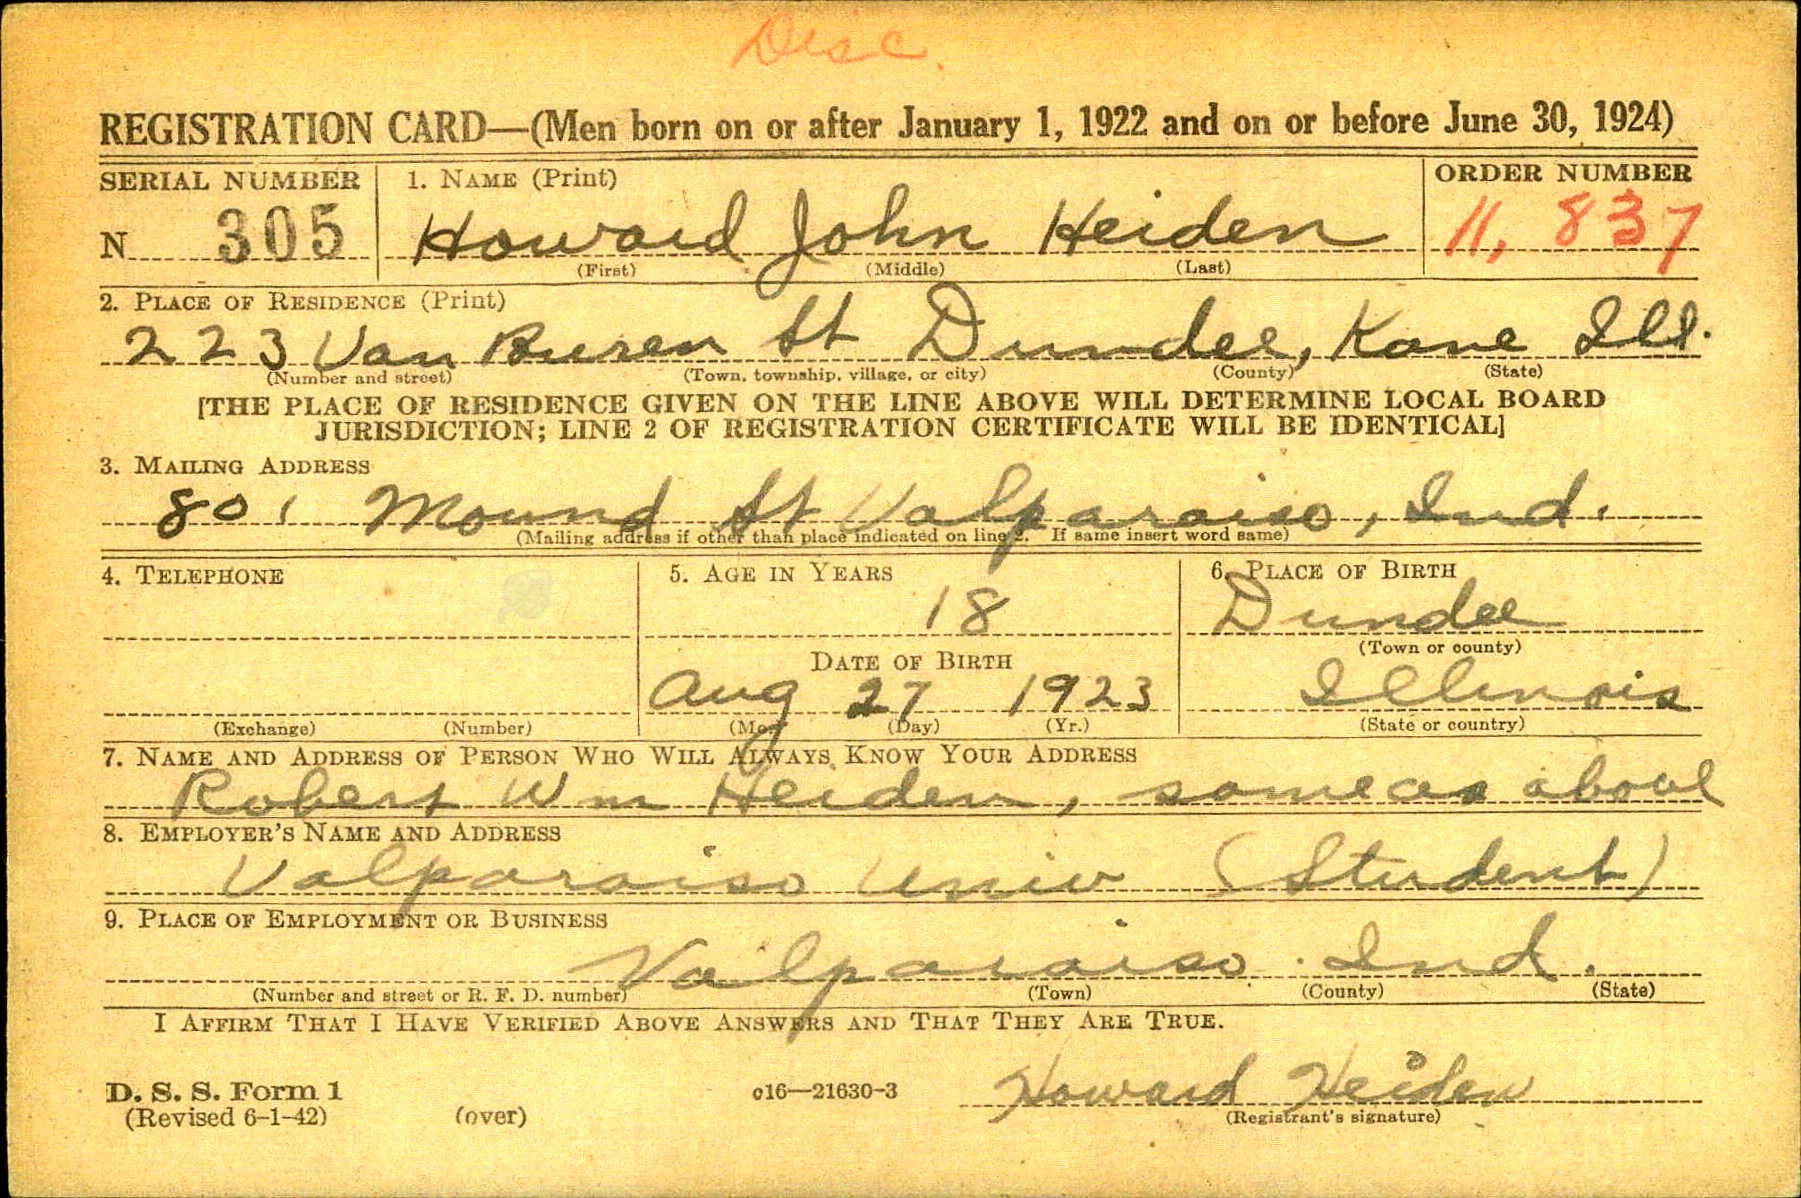 Disc.
REGISTRATION CARD—(Men born on or after January 1, 1922 and on or before June 30, 1924)
SERIAL NUMBER 1. NAME (Print) ORDER NUMBER
N 305 Howard John Heiden 11,837
(First) (Middle) (Last)
2. PLACE OF RESIDENCE (Print)
223 Van Buren St Dundee, Kane Ill.
(Number and street) (Town, township, village, or city) (County) (State)
[THE PLACE OF RESIDENCE GIVEN ON THE LINE ABOVE WILL DETERMINE LOCAL BOARD
JURISDICTION; LINE 2 OF REGISTRATION CERTIFICATE WILL BE IDENTICAL]
3. MAILING ADDRESS
801 Mound St Valparaiso, Ind.
(Mailing address if other than place indicated on line 2. If same insert word same)
4. TELEPHONE 5. AGE IN YEARS 6. PLACE OF BIRTH
18 Dundee
(Town or county)
DATE OF BIRTH
Aug 27 1923 Illinois
(Exchange) (Number) (Mo.) (Day) (Yr.) (State or country)
7. NAME AND ADDRESS OF PERSON WHO WILL ALWAYS KNOW YOUR ADDRESS
Robert Wm Heiden, same as above
8. EMPLOYER'S NAME AND ADDRESS
Valparaiso Univ (Student)
9. PLACE OF EMPLOYMENT OR BUSINESS
Valparaiso Ind.
(Number and street or R. F. D. number) (Town) (County) (State)
I AFFIRM THAT I HAVE VERIFIED ABOVE ANSWERS AND THAT THEY ARE TRUE.
D. S. S. Form 1 c16—21630-3 Howard Heiden
(Revised 6-1-42) (over) (Registrant's signature)